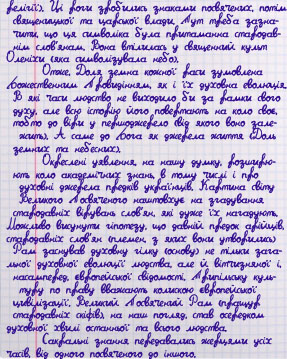 релігії). Ці роги зробились знаками посвячених, потім
священицької та царської влади. Тут треба зазна-
чити, що ця символіка була притаманна стародав-
нім слов'янам. Вона втілилась у священний культ
Оленіхи (яка символізувала небо).
Отже, Доля земна кожної раси зумовлена
Божественним Провидінням, як і їх духовна еволюція.
В які часи людство не виходило би за рамки свого
духу, але всю історію його повертають на коло своє,
тобто до віри у першоджерело (від якого воно зале-
жить). А саме до Бога як джерела життя (Доль
земних та небесних).
Окреслені уявлення, на нашу думку, розширю-
ють коло академічних знань, в тому числі і про
духовні джерела предків українців. Картина світу
Великого Посвяченого наштовхує на згадування
стародавніх вірувань слов'ян, які дуже їх нагадують.
Можливо висунути гіпотезу, що давній предок арійців,
стародавніх слов'ян (племен, з яких вони утворились)
Рам заснував духовну гілку (основу) не тільки зага-
льної духовної еволюції людства, але й вітчизняної і,
насамперед, європейської свідомості. Трипільську куль-
туру по праву вважають колискою європейської
цивілізації. Великий Посвячений Рам (пращур
стародавніх скіфів), на наш погляд, став осередком
духовної хвилі останньої та всього людства.
Сакральні знання передавались жерцями усіх
часів, від одного посвяченого до іншого.